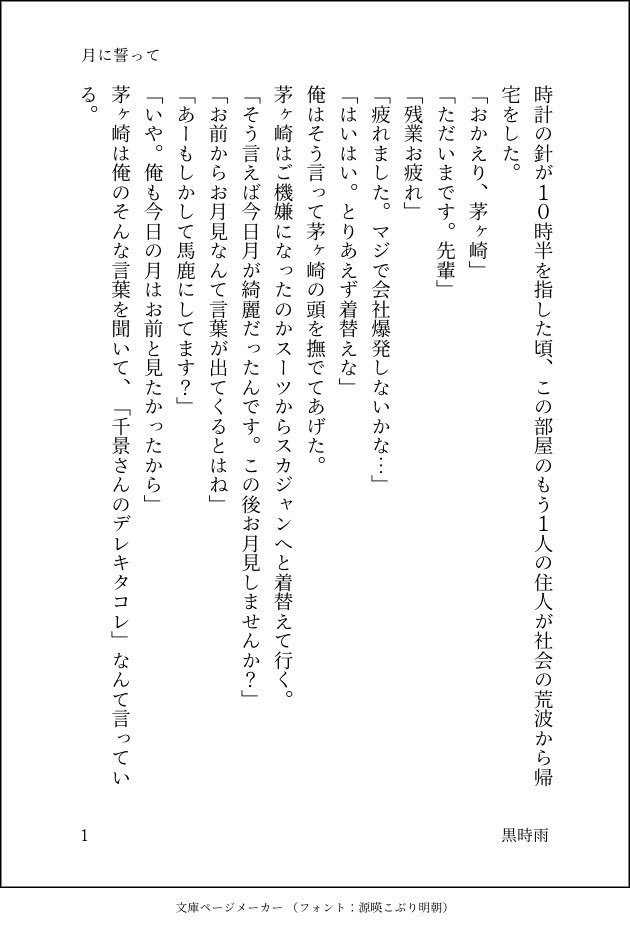 月に誓って
時計の針が１０時半を指した頃、この部屋のもう１人の住人が社会の荒波から帰
宅をした。
「おかえり、茅ヶ崎」
「ただいまです。先輩」
「残業お疲れ」
「疲れました。マジで会社爆発しないかな…」
「はいはい。とりあえず着替えな」
俺はそう言って茅ヶ崎の頭を撫でてあげた。
茅ヶ崎はご機嫌になったのかスーツからスカジャンへと着替えて行く。
「そう言えば今日月が綺麗だったんです。この後お月見しませんか？」
「お前からお月見なんて言葉が出てくるとはね」
「あーもしかして馬鹿にしてます？」
「いや。俺も今日の月はお前と見たかったから」
茅ヶ崎は俺のそんな言葉を聞いて、「千景さんのデレキタコレ」なんて言ってい
る。
黒時雨
1
文庫ページメーカー（フォント：源暎こぶり明朝）